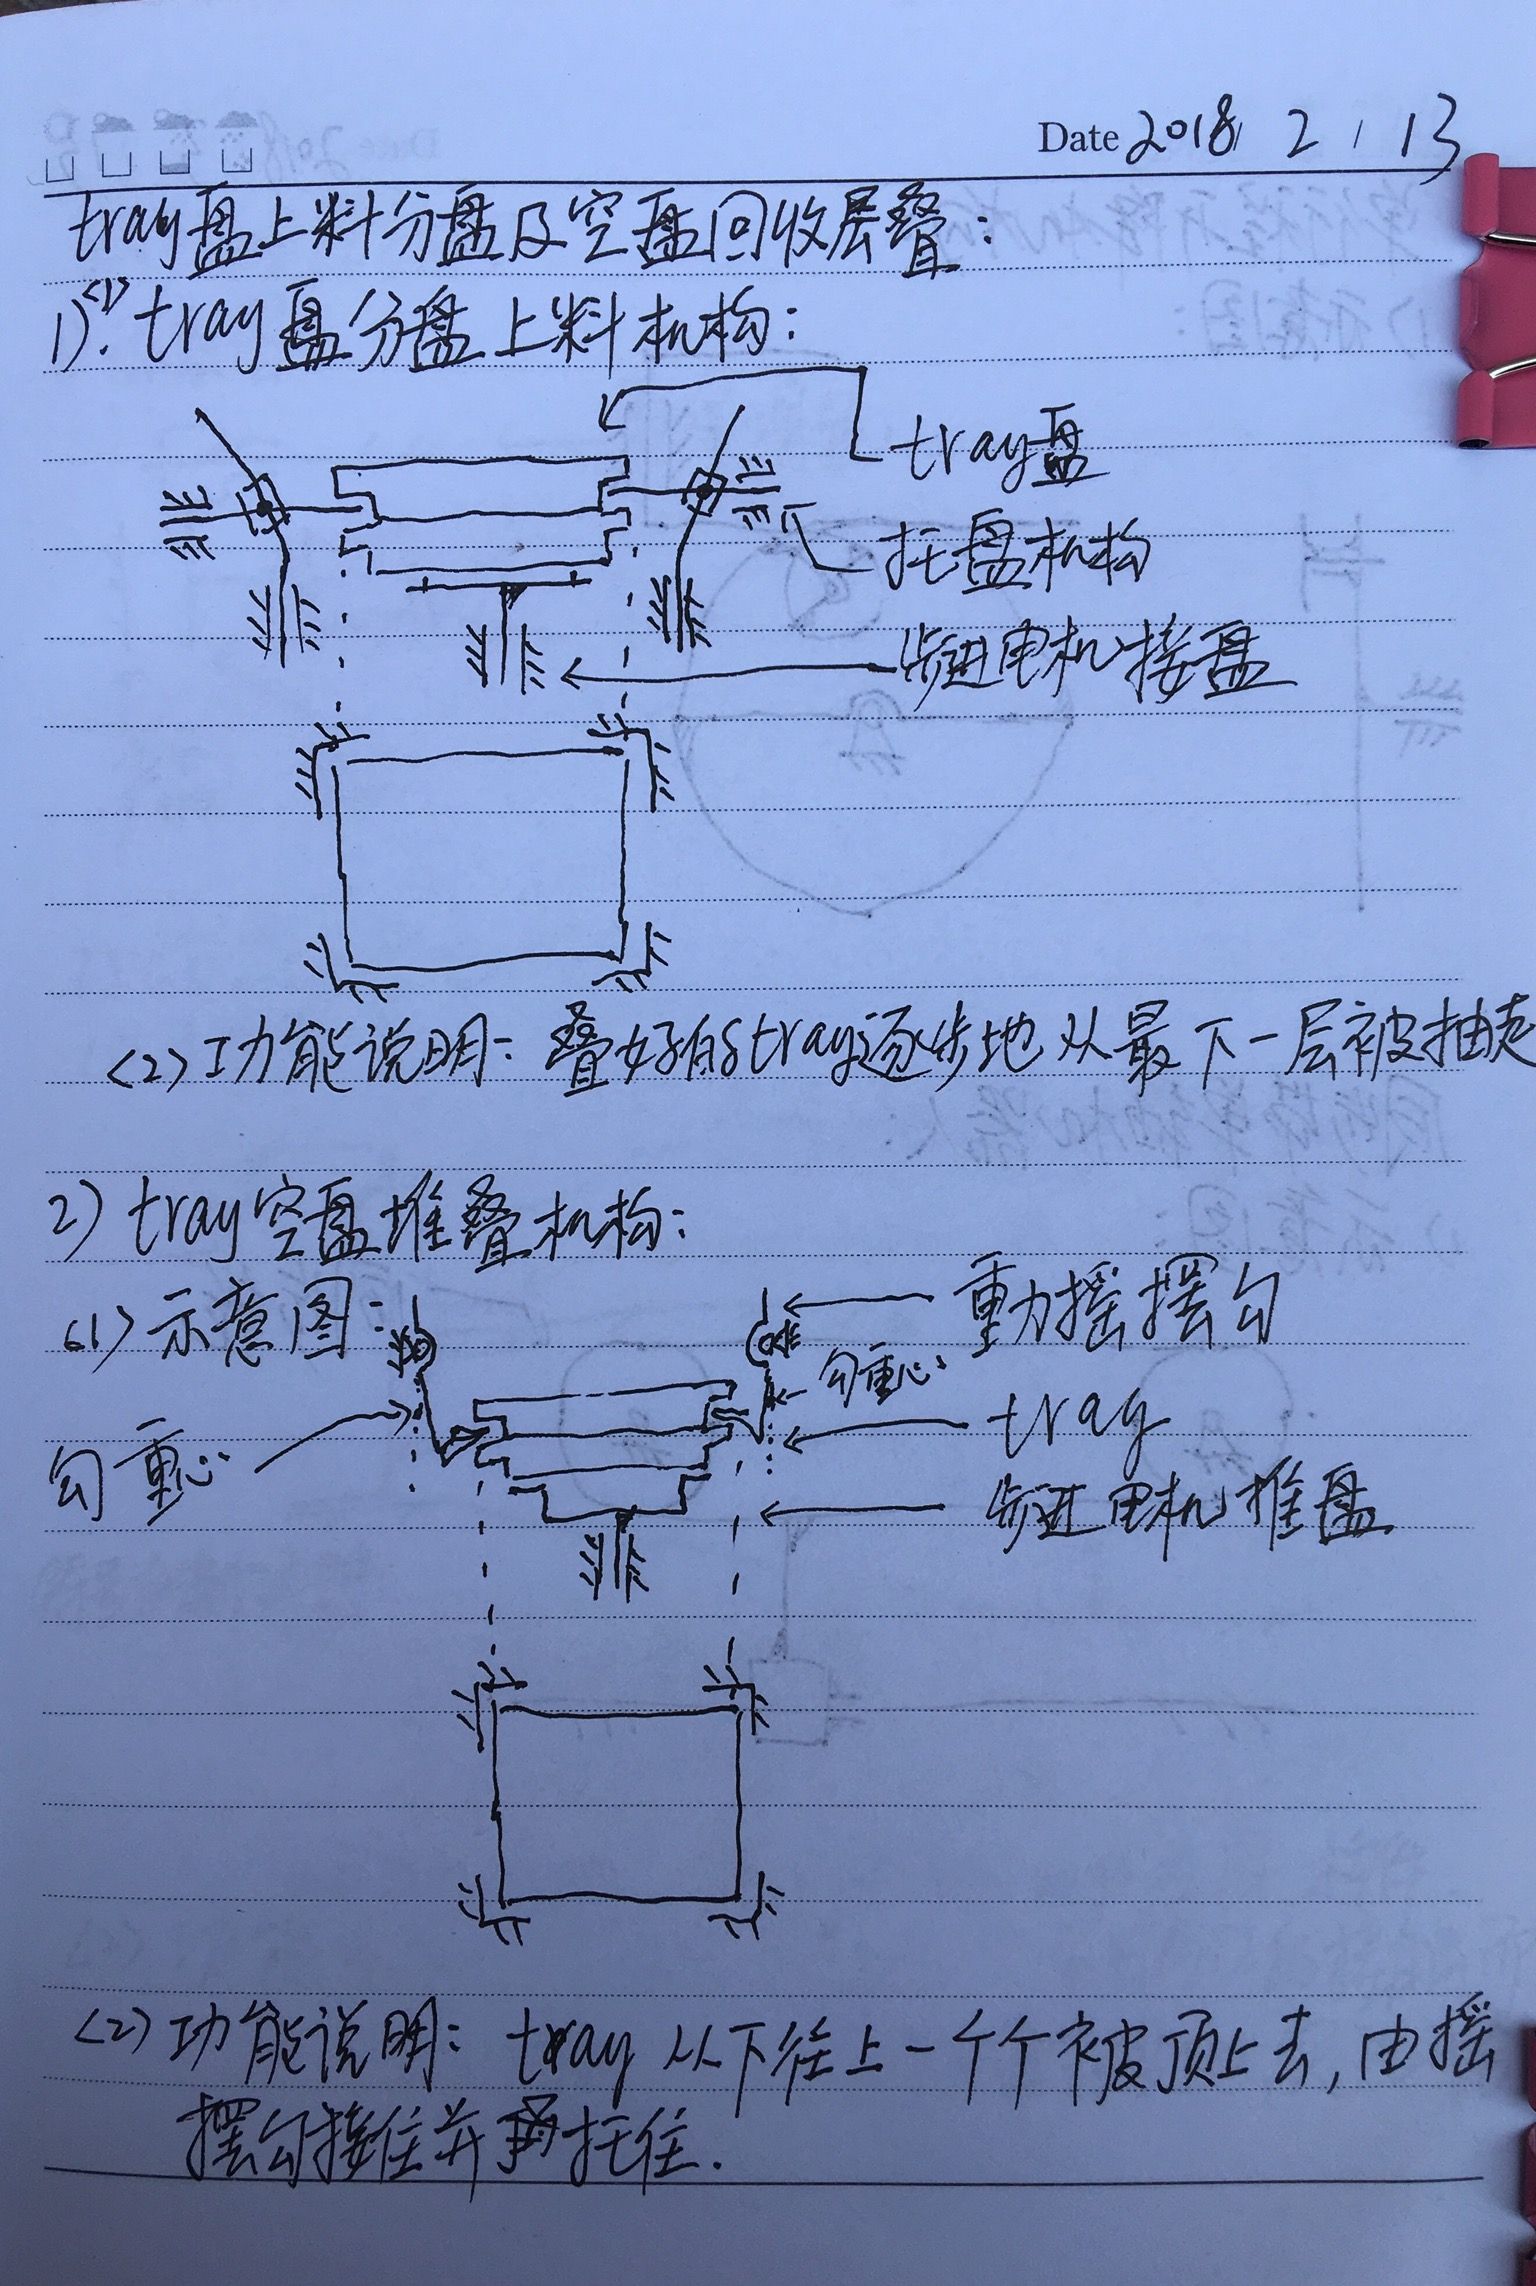 Date 2018 / 2 / 13
tray盘上料分盘及空盘回收层叠:
1).<1> tray盘分盘上料机构:
tray盘
托盘机构
步进电机接盘
<2>功能说明: 叠好的tray逐步地从最下一层被抽走
2) tray空盘堆叠机构:
<1>示意图:
重力摇摆勾
勾重心
tray
勾重心
步进电机推盘
<2>功能说明: tray从下往上一个个被顶上去,由摇
摆勾接住并托住.